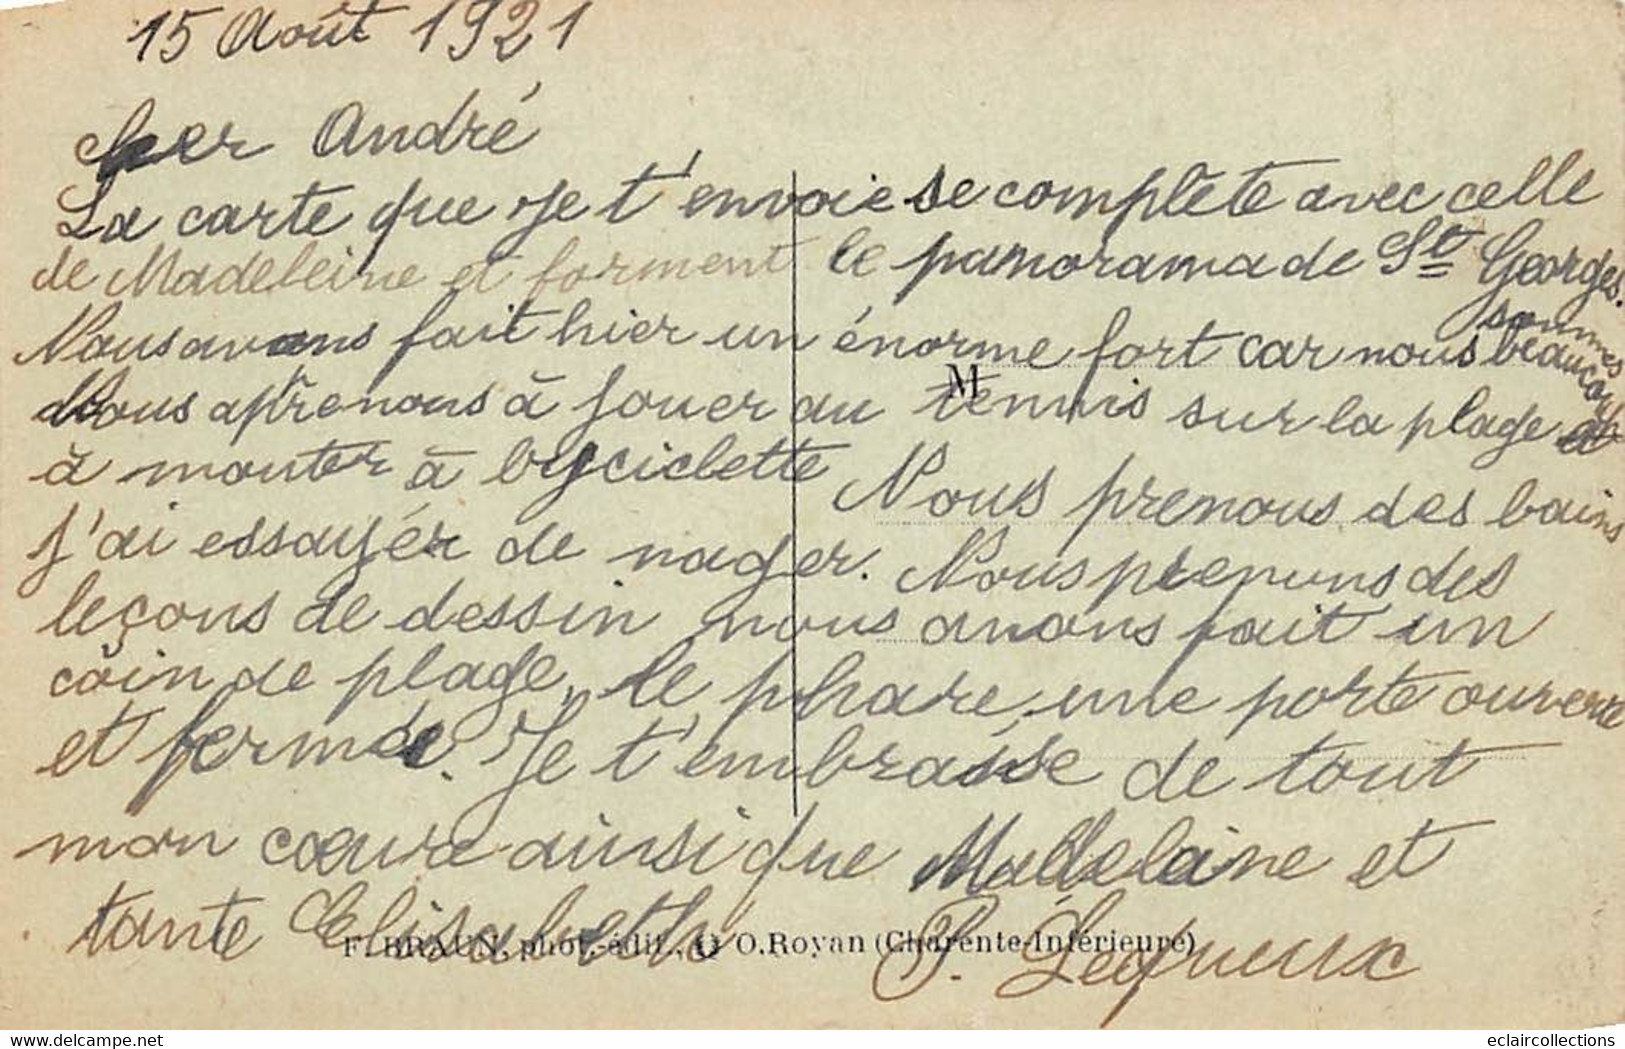 15 Août 1921
cher André
La carte que je t'envoie se complète avec celle
de Madeleine et forment le panorama de St Georges.
Nous avons fait hier un énorme fort car nous sommes beaucoup
M
Nous aprenons à jouer au tennis sur la plage et
à monter à byciclette Nous prenons des bains
j'ai essayér de nager. Nous prenons des
leçons de dessin nous avons fait un
coin de plage, le phare, une porte ouverte
et fermée. Je t'embrasse de tout
mon cœur ainsi que Madeleine et
tante Elisabeth P. Lequeux
F. BRAUN, phot.-édit., O. Royan (Charente-Inférieure)
delcampe.net
eclaircollections